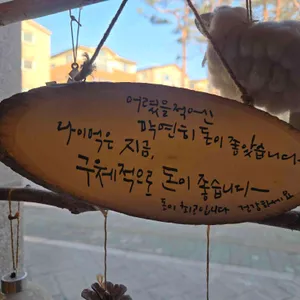 어렸을적에는
막연히 돈이 좋았습니다.
나이먹은 지금,
구체적으로 돈이 좋습니다~
돈이 최고입니다